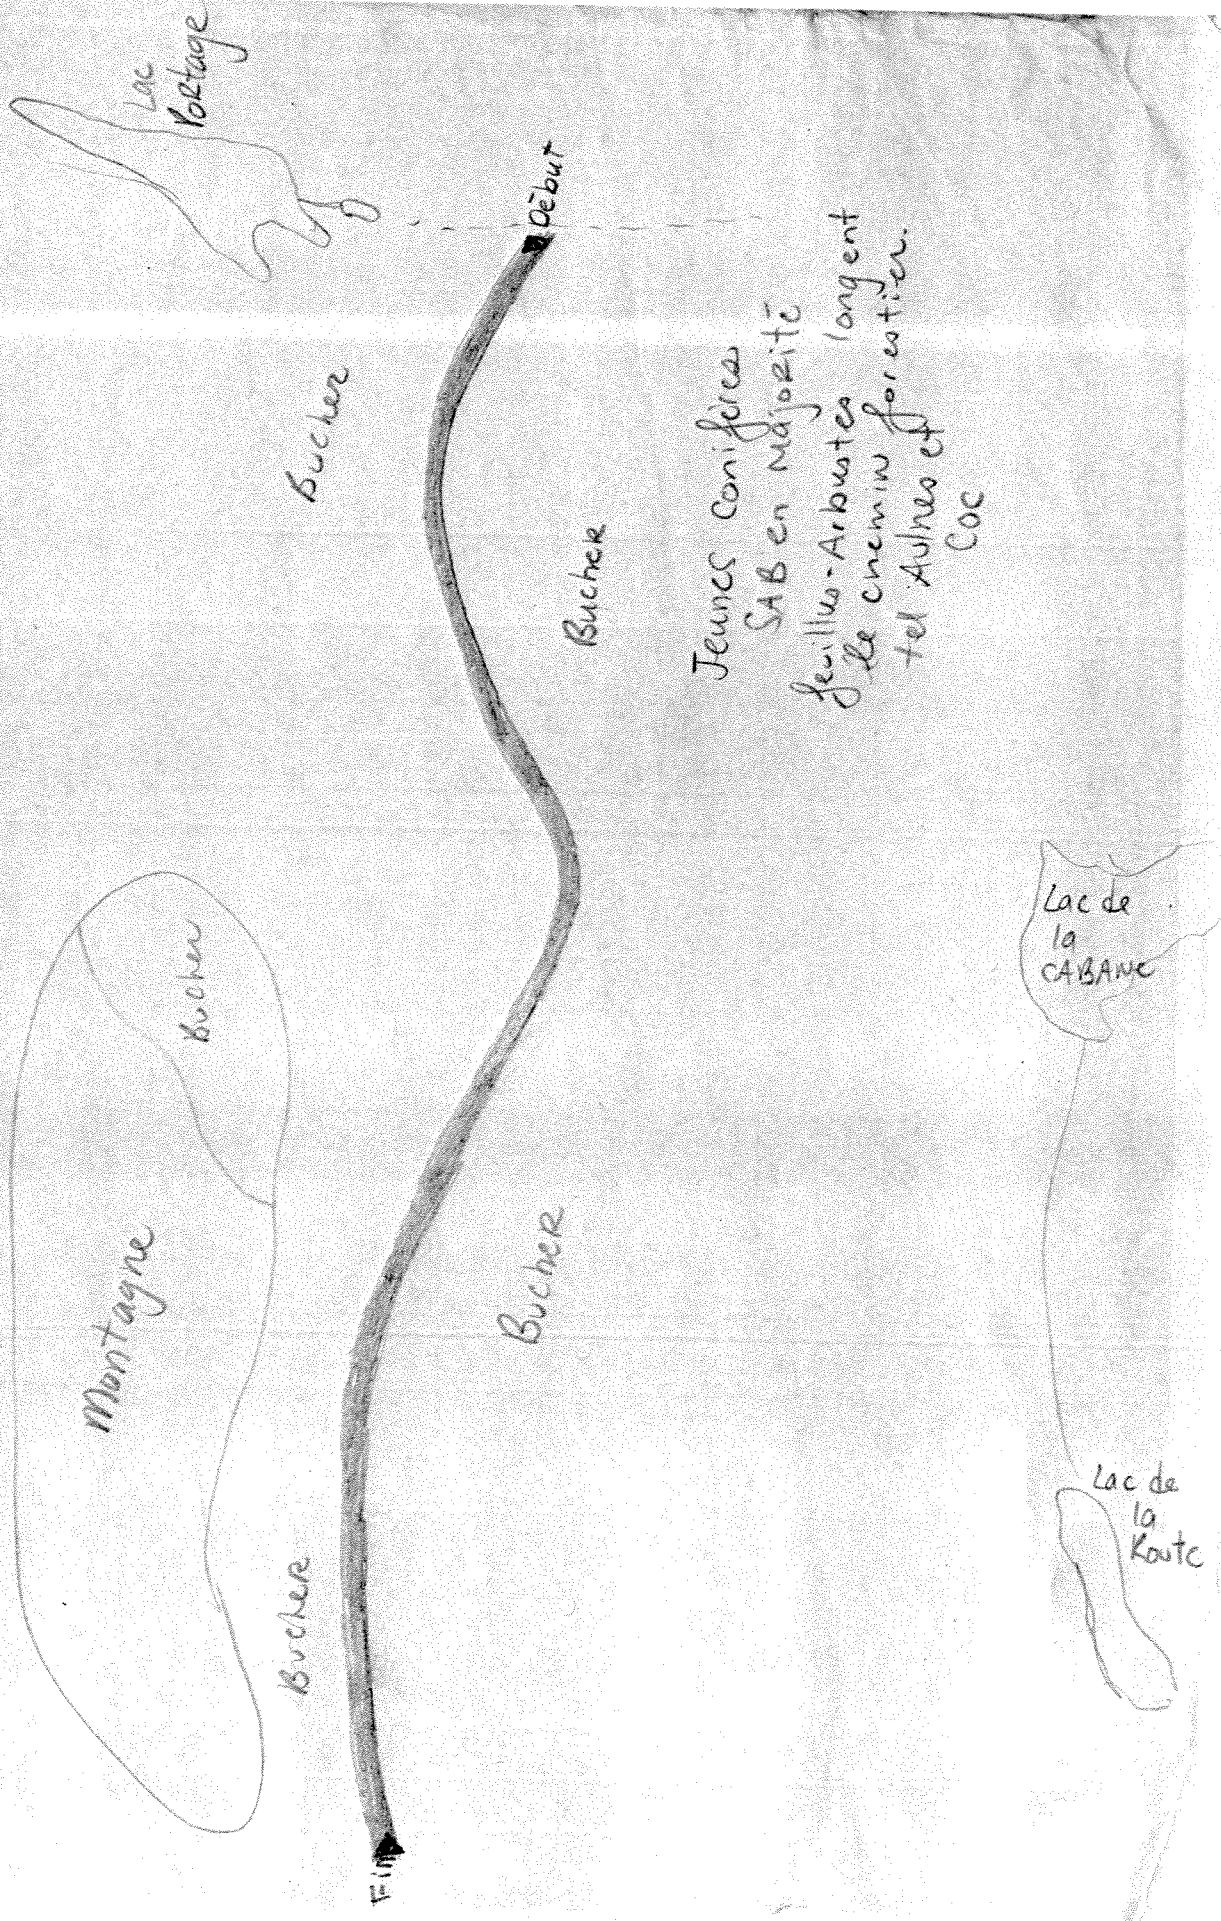 Lac
Portage
Début
Bucher
Bucher
Jeunes conifères
SAB en Majorité
feuillus-Arbustes longent
le chemin forestier.
tel Aulnes et
COC
Bucher
Montagne
Bucher
Bucher
Fin
Lac de
la
CABANE
Lac de
la
Route